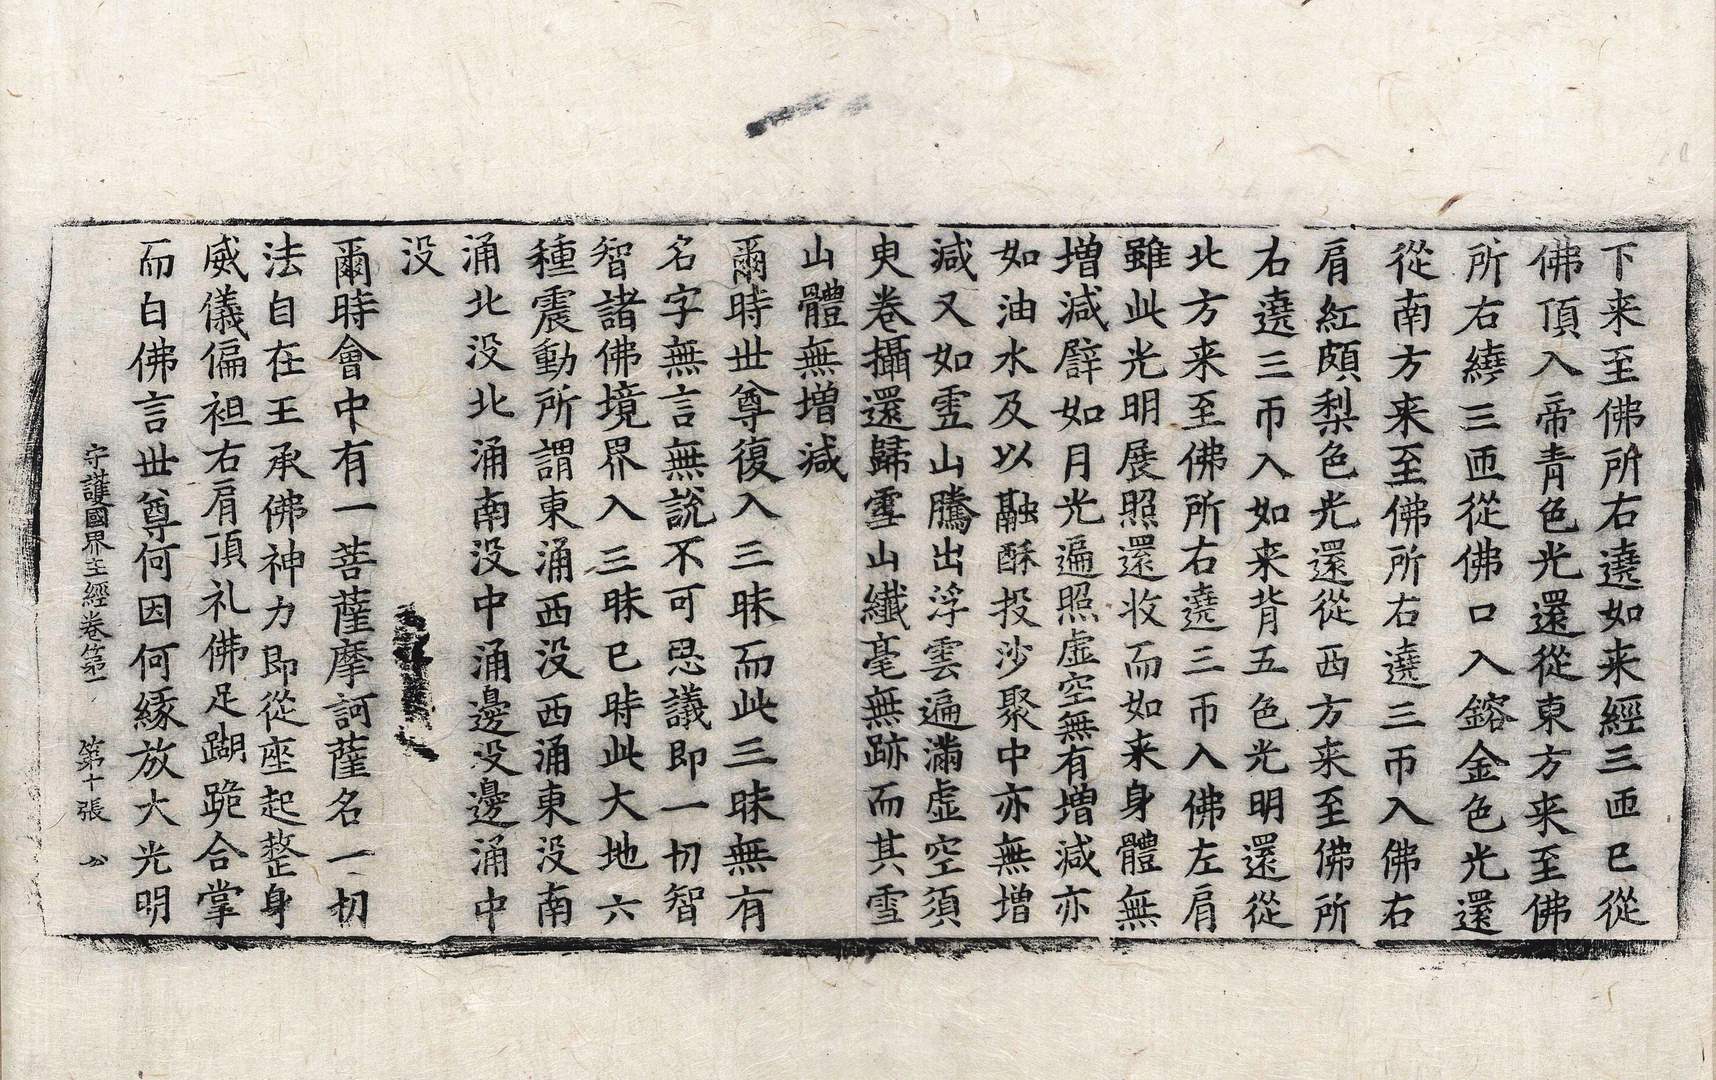 下来至佛所右遶如来經三匝已從
佛頂入帝青色光還從東方来至佛
所右繞三匝從佛口入鎔金色光還
從南方来至佛所右遶三帀入佛右
肩紅頗梨色光還從西方来至佛所
右遶三帀入如来背五色光明還從
北方来至佛所右遶三帀入佛左肩
雖此光明展照還收而如来身體無
增減譬如月光遍照虛空無有增減亦
如油水及以融酥投沙聚中亦無增
減又如雪山騰出浮雲遍滿虛空須
臾卷攝還歸雪山纖毫無跡而其雪
山體無增減
爾時世尊復入三昧而此三昧無有
名字無言無說不可思議即一切智
智諸佛境界入三昧已時此大地六
種震動所謂東涌西没西涌東没南
涌北没北涌南没中涌邊没邊涌中
没
爾時會中有一菩薩摩訶薩名一切
法自在王承佛神力即從座起整身
威儀偏袒右肩頂礼佛足蹋跪合掌
而白佛言世尊何因何緣放大光明
守護國界主經卷第一 第十張